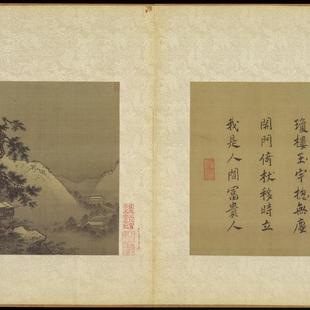 瓊樓玉宇無塵
開門倚杖移時立
我是人間富貴人